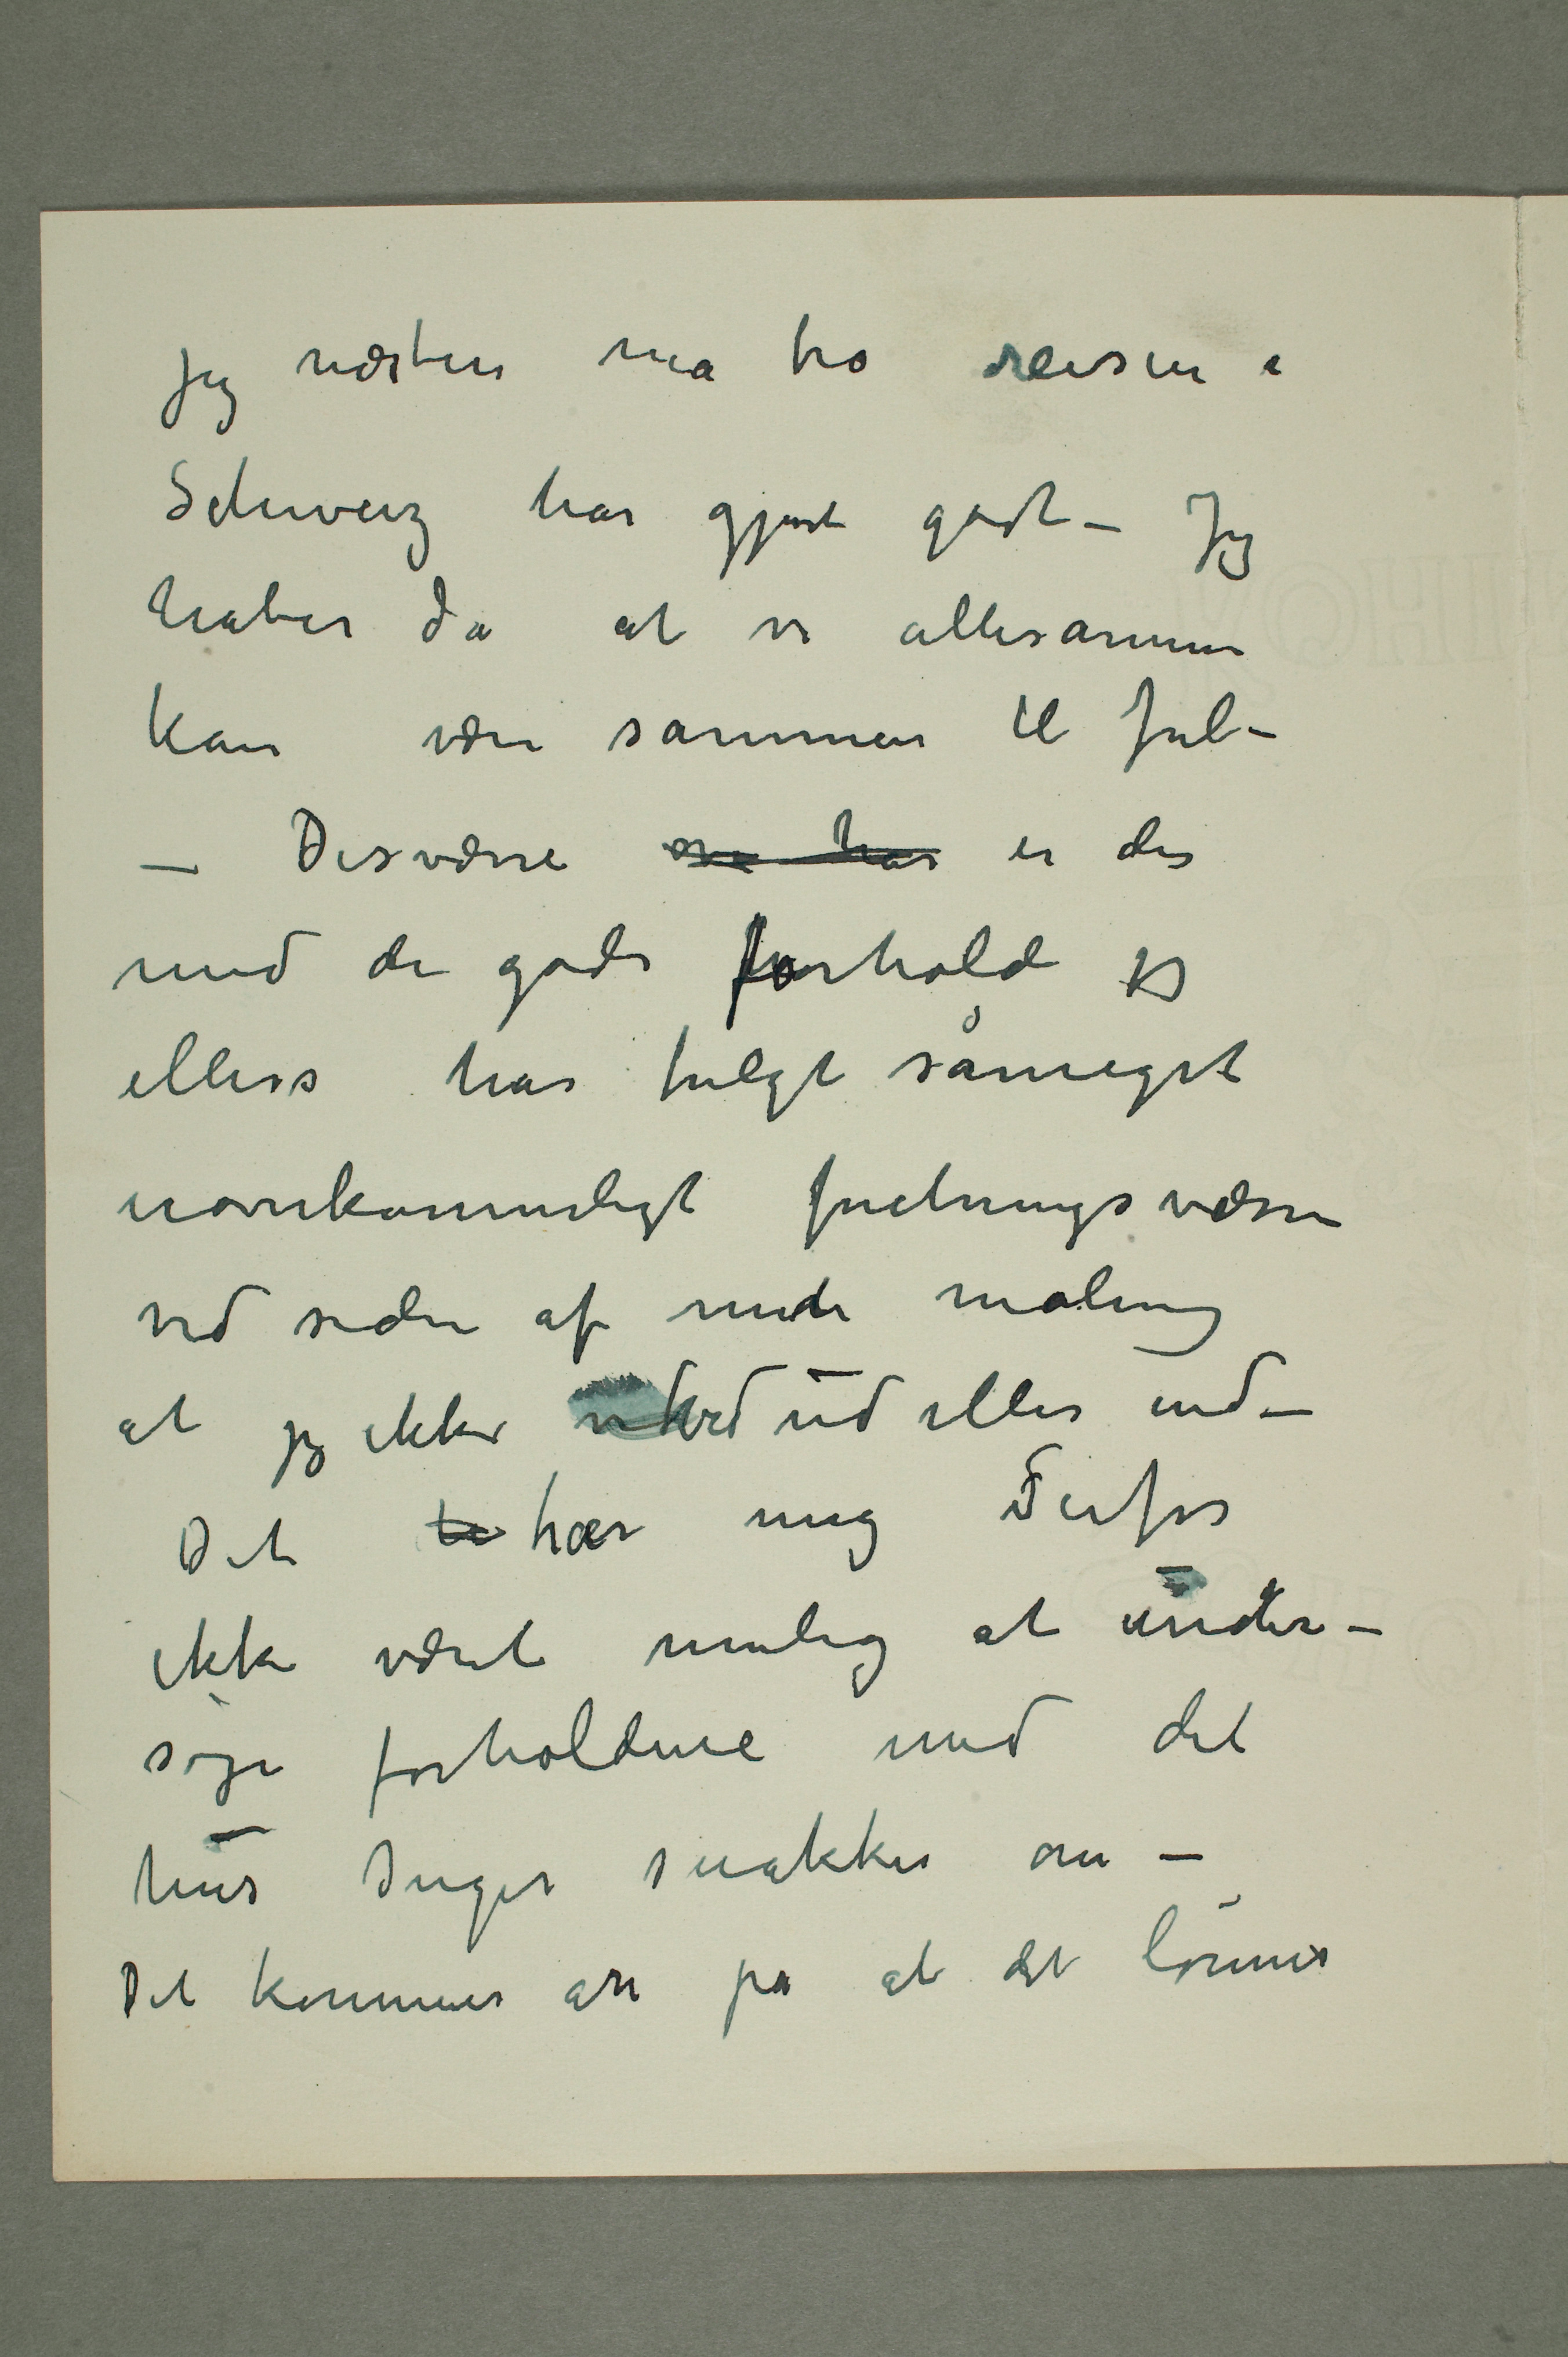 jeg næsten må tro reisen i
Schweiz har gjort godt – Jeg
håber da at vi allesammen
kan være sammen til Jul –
– Desværre er der
med de gode forhold jeg
ellers har fulgt såmeget
uovrkommeligt forretningsvæsen
ved siden af mit maling
at jeg ikke ved ud eller ind –
Det har mig derfor
ikke været mulig at under-
søge forholdene med det
hus Inger snakker om –
Det kommer an på at det lønner